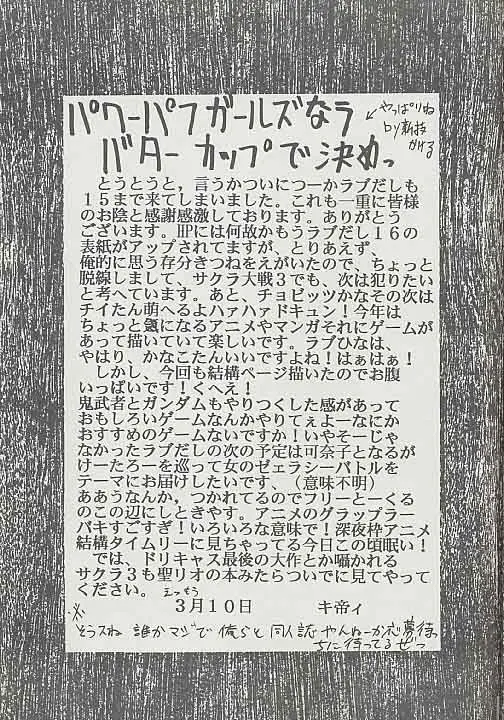 パワーパフガールズなラ
バターカップで決めっ
←やっぱりね
とうとうと，言うかついにつーかラブだしも
１５まで来てしまいました。これも一重に皆様
のお陰と感謝感激しております。ありがとう
ございます。HPには何故かもうラブだし１６の
表紙がアップされてますが、とりあえず、
俺的に思う存分きつねをえがいたので、ちょっと
脱線しまして、サクラ大戦３でも、次は犯りたい
と考へています。あと、チョビッツかなその次は
チイたん萌へるよハァハァドキュン！今年は
ちょっと氣になるアニメやマンガそれにゲームが
あって描いていて楽しいです。ラブひなは、
やはり、かなこたんいいですよね！はぁはぁ！
しかし、今回も結構ページ描いたのでお腹
いっぱいです！くへえ！
鬼武者とガンダムもやりつくした感があって
おもしろいゲームなんかやりてぇよーなにか
おすすめのゲームないですか！いやそーじゃ
なかったラブだしの次の予定は可奈子となるが
けーたろーを巡って女のゼェラシーバトルを
テーマにお届けしたいです、（意味不明）
ああうなんか，つかれてるのでフリーとーくる
のこの辺にしときやす。アニメのグラップラー
バキすごすぎ！いろいろな意味で！深夜枠アニメ
結構タイムリーに見ちゃってる今日この頃眠い！
では、ドリキャス最後の大作とか囁かれる
サクラ３も聖リオの本みたらついでに見てやって
ください。
３月１０日　キ帝ィ
※そうスね 誰かマジで俺らと同人誌やんねーか
待ってるぜっ